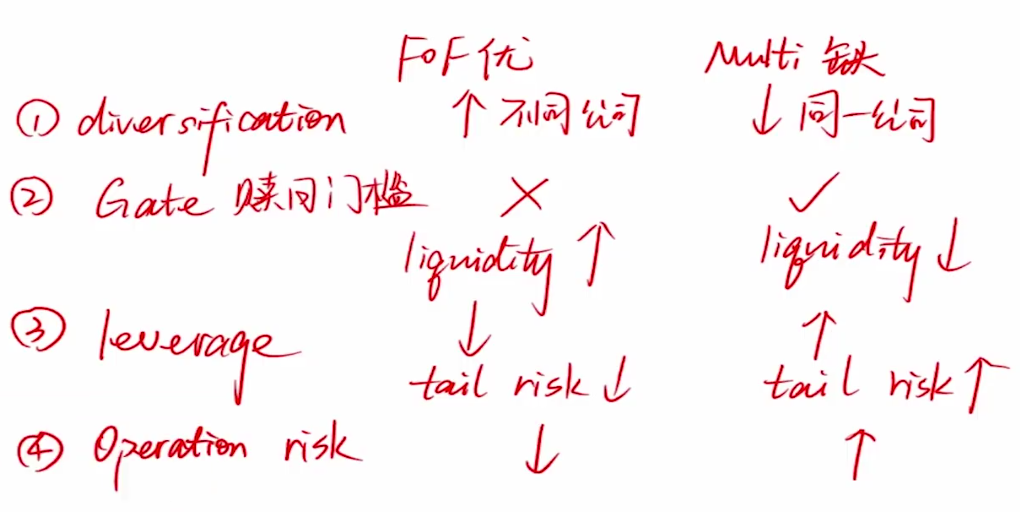 FoF优 Multi 缺
① diversification ↑ 不同公司 ↓ 同一公司
② Gate 赎回门槛 × ✓
liquidity ↑ liquidity ↓
③ leverage ↓ ↑
tail risk ↓ tail risk ↑
④ Operation risk ↓ ↑